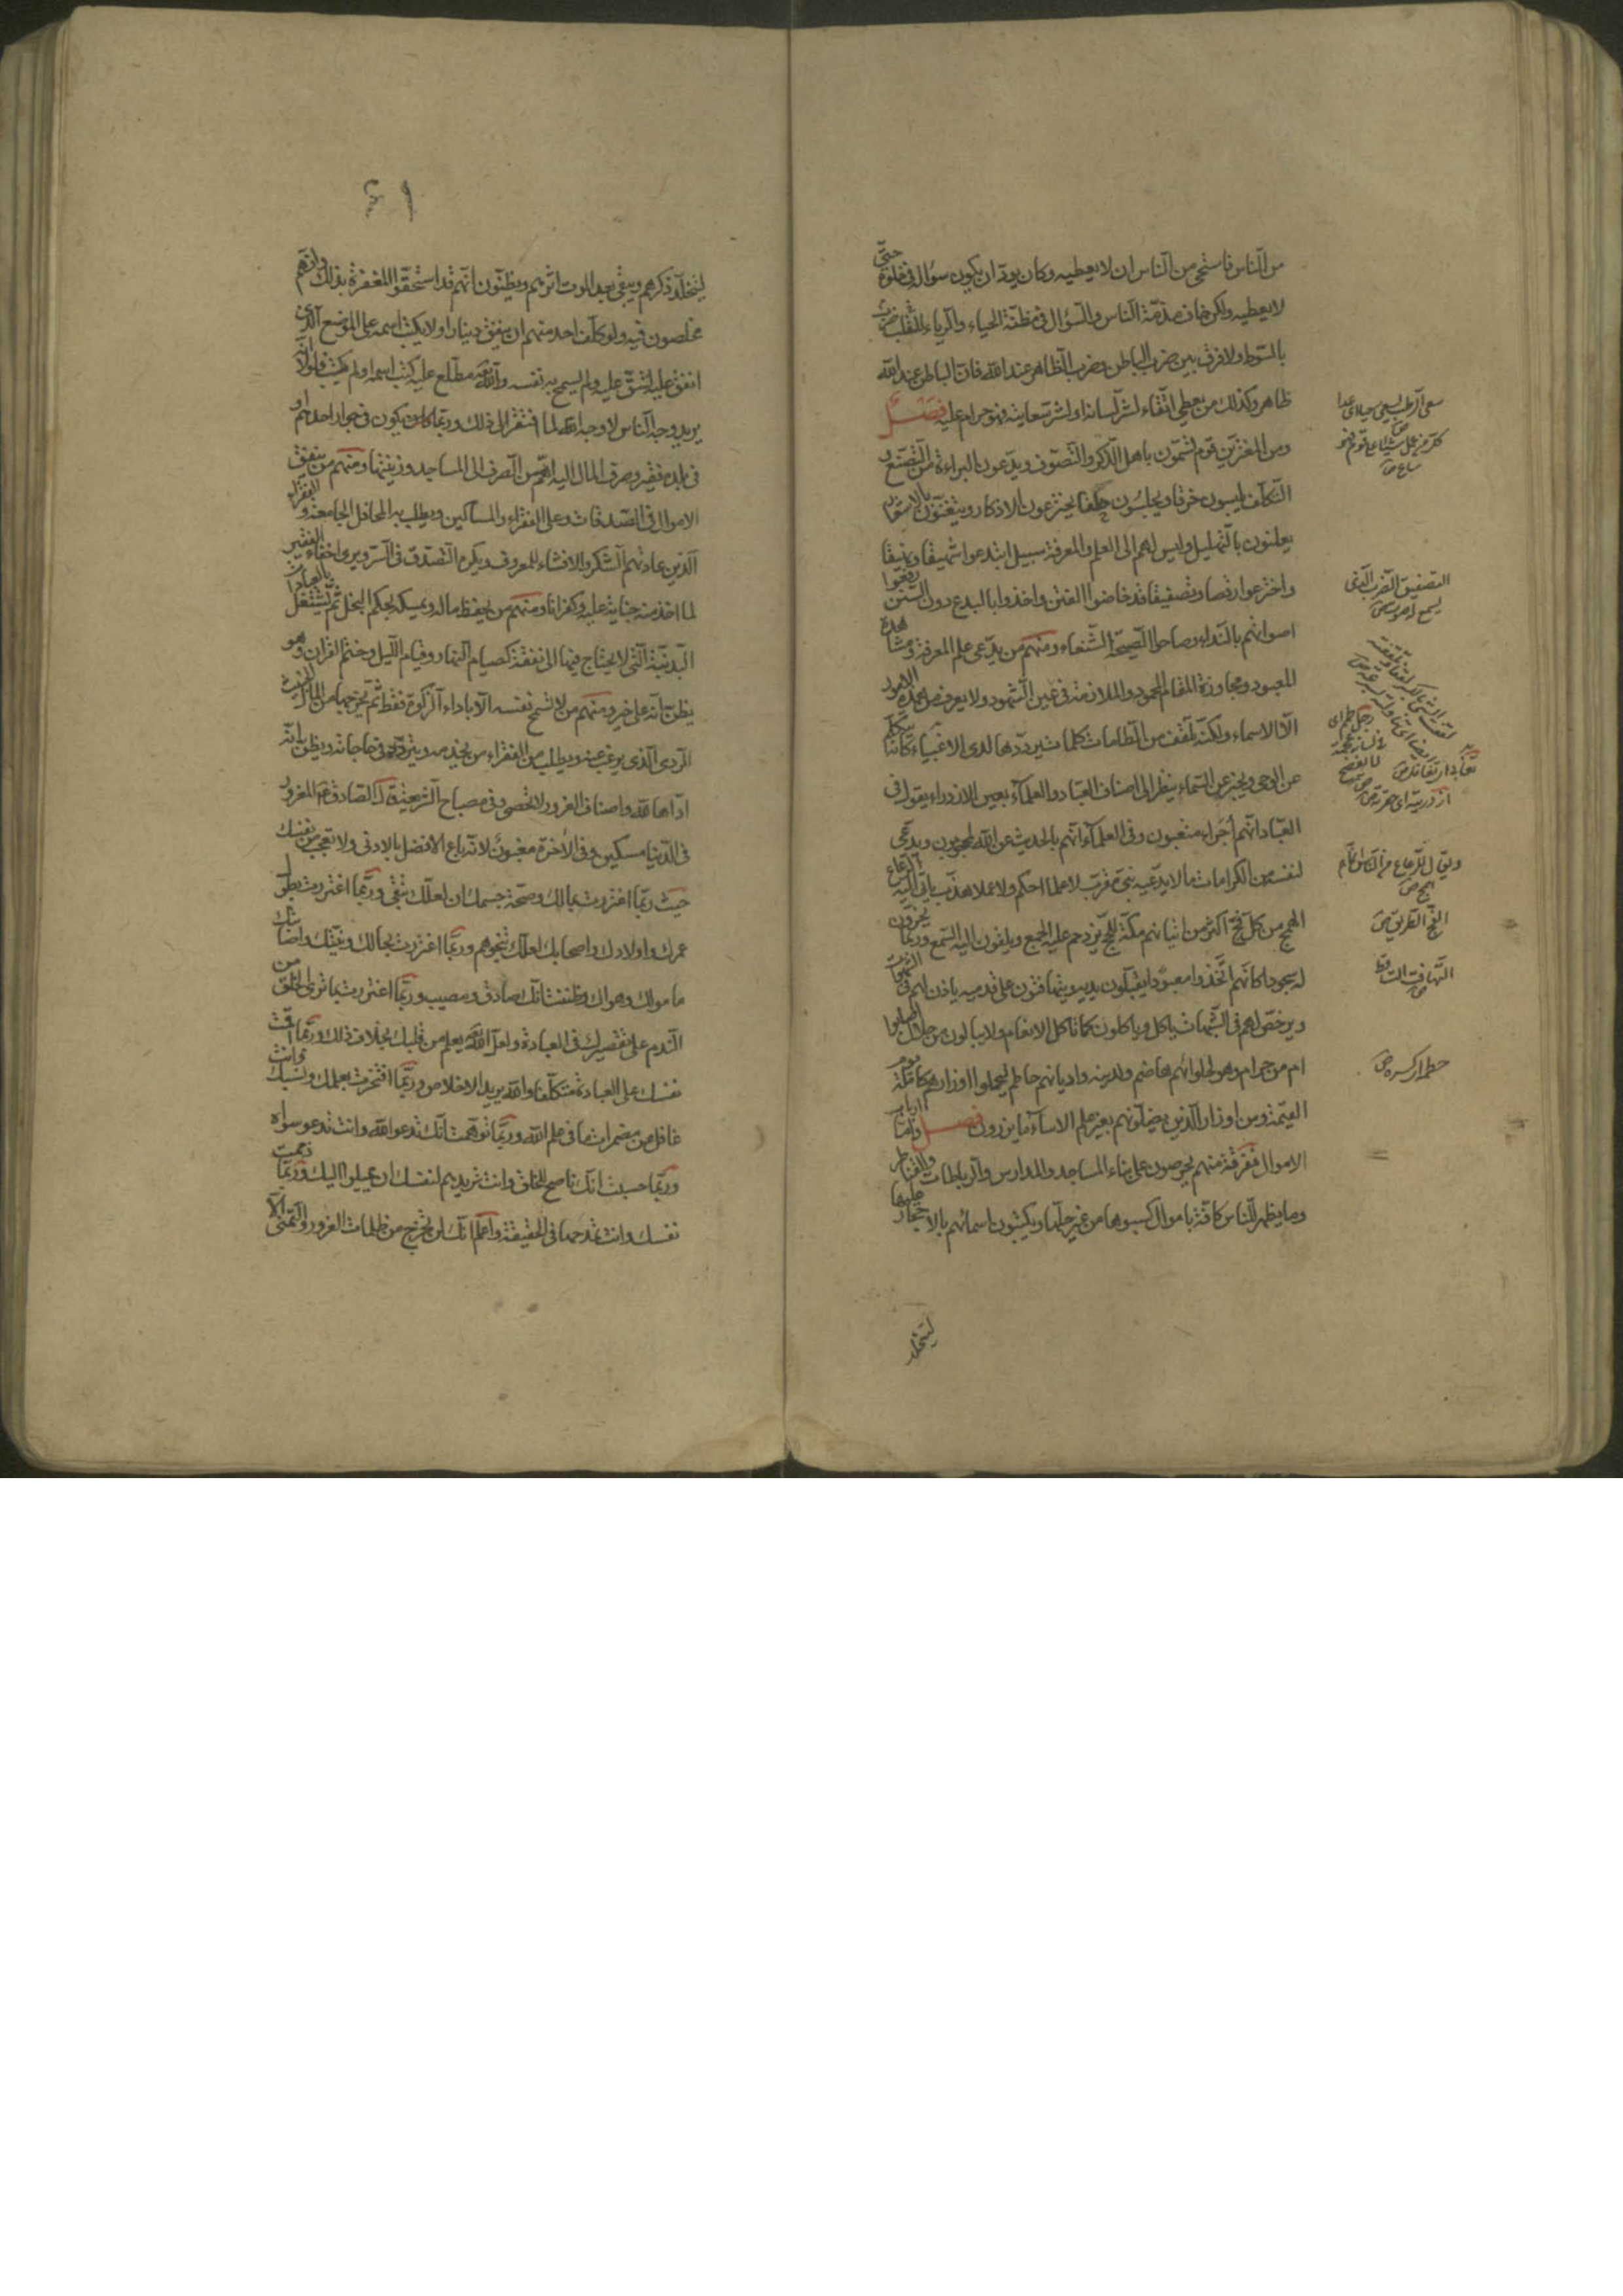 من الناس فاستحى من الناس ان لا يعطيه وكان يودّ ان يكون سؤاله فى خلوة حتّى
لا يعطيه ولكن خاف مذمّة الناس والسؤال فى مظنّة الحياء والرياء للقلب ضرب
بالسّوط ولا فرق بين ضرب الباطن وضرب الظاهر عند الله فانّ الباطن عند الله
ظاهر وكذلك من يعطى اتّقاء لشرّ لسانه او لشرّ سعايته فهو حرام عليه فصل
ومن المغترّين قوم تسمّون باهل الذّكر والتّصوّف ويدّعون البراءة من التّصنّع و
التّكلّف يلبسون خرقا ويجلسون حلقا يخترعون الاذكار ويتغنّون بالاشعار
يعلنون بالتهليل وليس لهم الى العلم والمعرفة سبيل ابتدعوا شهيقا ونهيقا
واخترعوا رقصا وتصفيقا قد خاضوا الفتن واخذوا بالبدع دون السّنن رفعوا
اصواتهم بالنّداء وصاحوا الصّيحة الشّنعاء ومنهم من يدّعى علم المعرفة ومشاهدة
المعبود ومجاوزة المقام المحمود والملازمة فى عين الشّهود ولا يعرف من هذه الامور
الّا الاسماء ولكنّه تلقّف من الطّامات كلمات يردّدها لدى الاغبياء كانّه يتكلّم
عن الوحى ويخبر عن السّماء ينظر الى اصناف العبّاد والعلماء بعين الازدراء يقول فى
العبّاد انّهم اجراء متعبون وفى العلماء انّهم بالحديث عن الله لمحجوبون ويدّعى
لنفسه من الكرامات ما لا يدّعيه نبىّ مقرّب لا علما احكم ولا عملا هذّب ياتى اليه الرعاع
الهمج من كلّ فجّ اكثر من اتيانهم مكّة للحجّ يزدحم عليه الجمع ويلقون اليه السّمع وربّما يخرّون
له سجودا كانّهم اتّخذوا معبودا يقبّلون يديه ويتهافتون على قدميه ياذن لهم فى الشهوات
ويرخّص لهم فى الشّبهات ياكل وياكلون كما تاكل الانعام ولا يبالون من حلال اصابوا
ام من حرام وهو لحلوائهم هاضم ولدينه واديانهم حاطم ليحملوا اوزارهم كاملة يوم
القيمة ومن اوزار الذين يضلّونهم بغير علم الا ساء ما يزرون فصل وامّا ارباب
الاموال ففرقة منهم يحرصون على بناء المساجد والمدارس والرّباطات والقناطر
وما يظهر للنّاس كافّة باموال كسبوها من غير حلّها ويكتبون اسمائهم بالاحجار عليها
ليتخلّد
التصفيق الضرب الذى يسمع له صوت ص
الفجّ الطّريق ص
التّهافت التساقط ص
حطم ار كسره ص
ليتخلّد ذكرهم ويبقى بعد الموت اثرهم ويظنّون انّهم قد استحقّوا المغفرة بذلك وانّهم
مخلصون فيه ولو كلّف احد منهم ان ينفق دينارا ولا يكتب اسمه على الموضع الّذى
انفق عليه لشقّ عليه ولم يسمح به نفسه والله تعه مطّلع عليه كتب اسمه او لم يكتب فلولا انّه
يريد وجه الناس لا وجه الله لما افتقر الى ذلك وربّما كان يكون فى جوار احدهم او
فى بلده فقير وصرف المال اليه اهمّ من الصّرف الى المساجد وزينتها ومنهم من ينفق
الاموال فى الصّدقات وعلى الفقراء والمساكين ويطلب به المحافل الجامعة و الفقراء
الّذين عادتهم الشكر والافشاء للمعروف ويكره التّصدّق فى السّرّ ويرى اخفاء الفقير
لما اخذ منه جناية عليه وكفرانا ومنهم من يحفظ ماله ويمسكه بحكم البخل ثمّ يشتغل بالعبادات
البدنيّة الّتى لا يحتاج فيها الى نفقة كصيام النهار وقيام اللّيل وختم القران وهو
يظنّ انّه على خير ومنهم من لا تسمح نفسه الّا باداء الزكوة فقط ثمّ يخرجها من المال الخبيث
الرّدى الّذى يرغب عنه ويطلب من الفقراء من يخدمه ويتردّد فى حاجاته ويظنّ انّه
ادّاها لله واصناف الغرور لا تحصى وفى مصباح الشّريعة قال الصّادق عه المغرور
فى الدّنيا مسكين وفى الاخرة مغبون لانّه باع الافضل بالادنى ولا تعجب من نفسك
حيث ربّما اغتررت بمالك وصحّة جسمك ان لعلّك تبقى وربّما اغتررت بطول
عمرك واولادك واصحابك لعلّك تنجو بهم وربّما اغتررت بجمالك ومنيتك واصابتك
مامولك وهواك وظننت انّك صادق ومصيب وربّما اغتررت بما ترى الخلق من
النّدم على تقصيرك فى العبادة ولعلّ الله تعه يعلم من قلبك بخلاف ذلك وربّما اقمت
نفسك على العبادة متكلّفا والله يريد الاخلاص وربّما افتخرت بعلمك ونسبك وانت
غافل عن مضمرات ما فى علم الله وربّما توهّمت انّك تدعو الله وانت تدعو سواه
وربّما حسبت انّك ناصح للخلق وانت تريدهم لنفسك ان يميلوا اليك وربّما ذممت
نفسك وانت تمدحها فى الحقيقة واعلم انّك لن تخرج من ظلمات الغرور والتّمنّى الّا